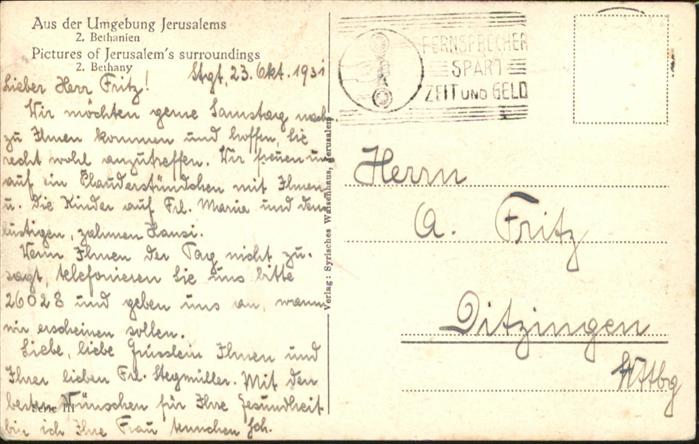 Aus der Umgebung Jerusalems
2. Bethanien
Pictures of Jerusalem's surroundings
2. Bethany
Stgt, 23. Okt. 1931
Lieber Herr Fritz!
Wir möchten gerne Samstag nach
zu Ihnen kommen und hoffen, Sie
recht wohl anzutreffen. Wir freuen uns
auf ein Plauderstündchen mit Ihnen
u. die Kinder auf Frl. Maria und den
lustigen, zahmen Hansi.
Wenn Ihnen der Tag nicht zu-
sagt, telefonieren Sie uns bitte
26028 und geben uns an, wann
wir erscheinen sollen.
Liebe, liebe Grüsslein Ihnen und
Ihrer lieben Frl. Stegmüller. Mit den
besten Wünschen für Ihre Gesundheit
bin ich Ihre Frau
Serie III
Verlag: Syrisches Waisenhaus, Jerusalem
FERNSPRECHER
SPART
ZEIT UND GELD
Herrn
A. Fritz
Ditzingen
Wttbg